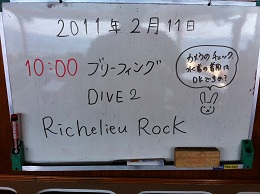 2011年2月11日
10:00 ブリーフィング
DIVE 2
Richelieu Rock
カメラのチェック、
水着の着用は
OKですか?